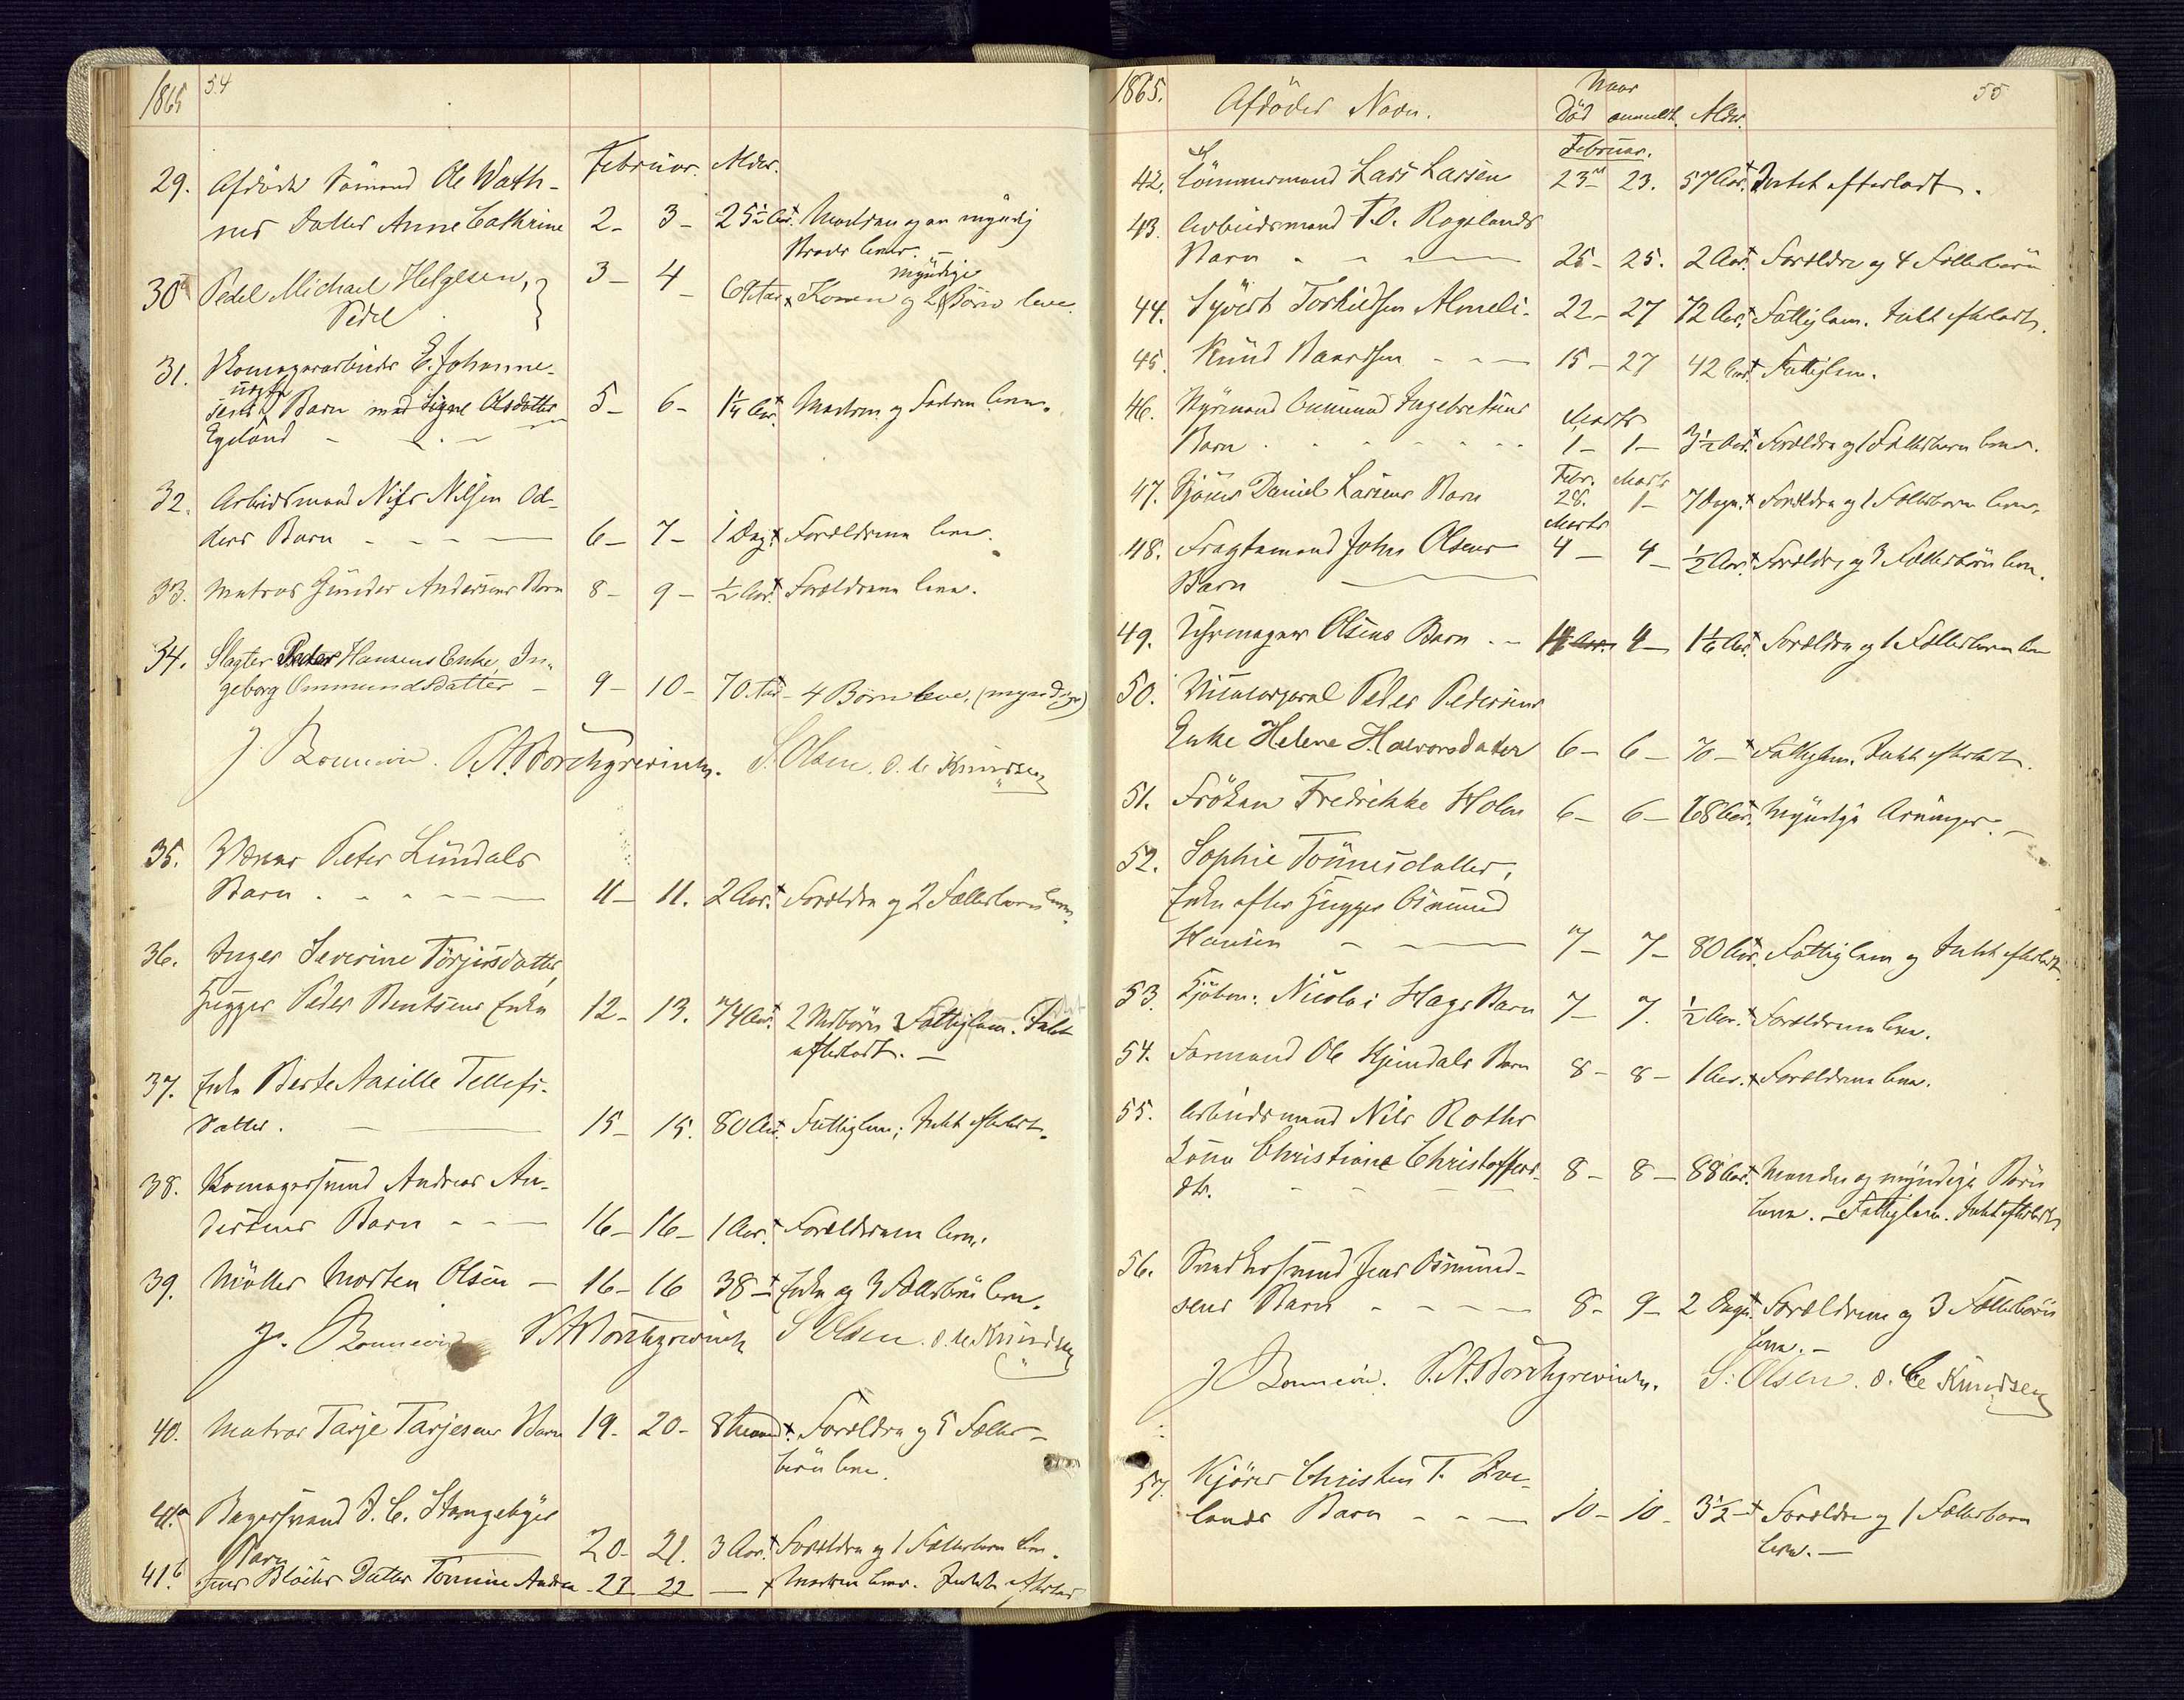 1865 54
Februar. Alder.
29. Afdöde Sömand Ole Wath-
nes Datter Anne Cathrine 2 - 3 - 25½ Aar. Moderen og en myndig
Broder lever. -
30 Pedel Michael Helgesen, 3 - 4 - 69 Aar x Konen og 2 myndige Börn leve.
Pedel
31. Skomagerarbeider E. Johanne-
sens uægte Barn med Signe Olsdatter 5 - 6 - 1¼ Aar. Moderen og Faderen leve.
Egeland - -
32. Arbeidsmand Nils Nilsen Od-
ders Barn - - - 6 - 7 - 1 Dag. Forældrene leve.
33. Matros Gunder Andersens Barn 8 - 9 - ½ Aar. Forældrene leve.
34. Slagter Peder Hansens Enke, In-
geborg Ommundsdatter - 9 - 10 - 70 Aar - 4 Börn leve, (myndige)
J. Bonnevie. P.A. Borchgrevink. S. Olsen. O. C. Knudsen
35. Peter Lundals
Barn - - - 11 - 11. 2 Aar. Forældre og 2 Fællesbørn leve.
36. Inger Severine Törjesdatter,
Hugger Peder Bentsens Enke 12 - 13. 74 Aar. 2 Börn Fattiglem. Intet
efterladt. -
37. Enke Berte Aasille Tellefs-
datter. - 15 - 15. 80 Aar. Fattiglem; Intet efterladt.
38. Skomagersvend Andreas An-
dersens Barn - - - 16 - 16 - 1 Aar. Forældrene leve.
39. Möller Morten Olsen - 16 - 16 38 - Enke og 3 Fællesbörn leve.
J. Bonnevie P.A. Borchgrevink S. Olsen. O. C. Knudsen
40. Matros Tarje Tarjesens Barn 19 - 20 - 8 Maaned. Forældre og 5 Fælles-
börn leve.
41.a Bagersvend J. C. Stangebyes
Barn 20 - 21. 3 Aar. Forældre og 1 Fællesbarn leve.
41.b Datter Tomine Andrea - 22 22 - x Moderen lever. Intet efterladt
1865. Afdödes Navn. Naar 55
Död anmeldt. Alder.
Februar.
42. Tömmermand Lars Larsen 23 - 23. 57 Aar. Intet efterladt.
43. Arbeidsmand T. O. Rogelands
Barn - - - 25 - 25. 2 Aar. Forældre og 4 Fællesbörn
44. Syvert Torkildsen Almeli - 22 - 27 72 Aar. Fattiglem. Intet efterladt.
45. Knud Baardsen - - - 15 - 27 42 Aar. Fattiglem.
46. Styrmand Omund Ingebretsens Marts
Barn - - - 1 - 1 - 3½ Aar. Forældre og 1 Fællesbarn lever.
Febr. Marts
47. Kjörer Daniel Larsens Barn 28. 1 - 7 Dage. Forældre og 1 Fællesbarn lever.
Marts
48. Fragtemand John Olsens 4 - 4 - ½ Aar. Forældre og 3 Fællesbörn leve.
Barn
49. Uhrmager Olsens Barn - - 4 - 1½ Aar. Forældre og 1 Fællesbarn leve
50. Peder Pedersens
Enke Helene Halvorsdatter 6 - 6 - 70 - Fattiglem. Intet efterladt.
51. Fröken Fredrikke Holm 6 - 6 - 68 Aar. Myndige Arvinger. -
52. Sophie Tönnesdatter,
Enke efter Hugger Osmund
Hansen - - - 7 - 7 - 80 Aar. Fattiglem og Intet efterladt.
53. Kjöbm: Nicolai Hags Barn 7 - 7. ½ Aar. Forældrene leve.
54. Formand Ole Hjemdals Barn 8 - 8 - 1 Aar. Forældrene leve.
55. Arbeidsmand Nils Roths
Kone Christiane Christoffers- 8 - 8 - 88 Aar. Manden og myndige Börn
dtr. - - - leve. - Fattiglem. Intet efterladt
56. Jens Osmund-
sens Barn - - - 8 - 9 - 2 Dage. Forældrene og 3 Fællesbörn
leve. -
J. Bonnevie. P.A. Borchgrevink. S. Olsen. O. C. Knudsen
57. Kjörer Christen T. Eve-
lands Barn - - - 10 - 10 - 3½ - Forældre og 1 Fællesbarn
leve. -